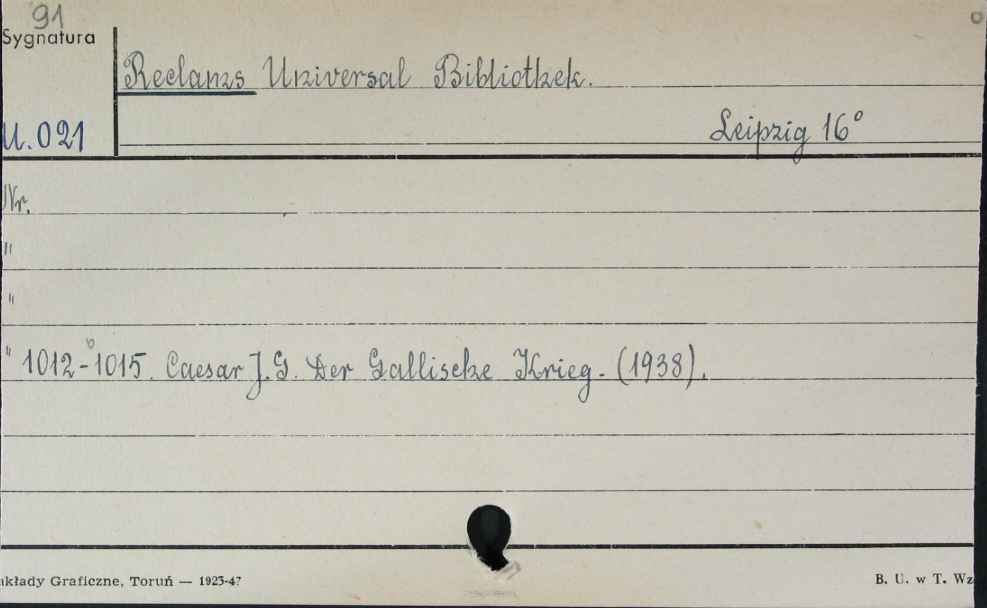 91
Sygnatura
Reclams Universal Bibliothek.
U. 021
Leipzig 16°
Nr.
"
"
" 1012-1015. Caesar J. G. Der Gallische Krieg. (1938).
akłady Graficzne, Toruń — 1923-47
B. U. w T. Wz